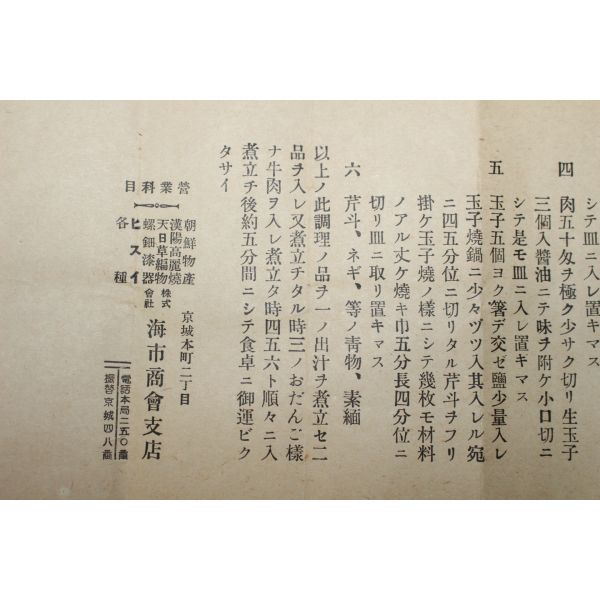 シテ皿ニ入レ置キマス
四 肉五十匁ヲ極ク少サク切リ生玉子
三個入醬油ニテ味ヲ附ケ小口切ニ
シテ是モ皿ニ入レ置キマス
五 玉子五個ヨク箸デ交ゼ鹽少量入レ
玉子燒鍋ニ少々ヅツ入其入レル宛
ニ四五分位ニ切リタル芹斗ヲフリ
掛ケ玉子燒ノ樣ニシテ幾枚モ材料
ノアル丈ケ燒キ巾五分長四分位ニ
切リ皿ニ取リ置キマス
六 芹斗、ネギ、等ノ青物、素緬
以上ノ此調理ノ品ヲ一ノ出汁ヲ煮立セ二
品ヲ入レ又煮立チタル時三ノおだんご樣
ナ牛肉ヲ入レ煮立タ時四五六ト順々ニ入
煮立チ後約五分間ニシテ食卓ニ御運ビク
タサイ
營業科目
朝鮮物產
漢陽高麗燒
天日草編物
螺鈿漆器
ヒスイ
各種
京城本町二丁目
株式會社 海市商會支店
電話本局二五〇番
振替京城四八番